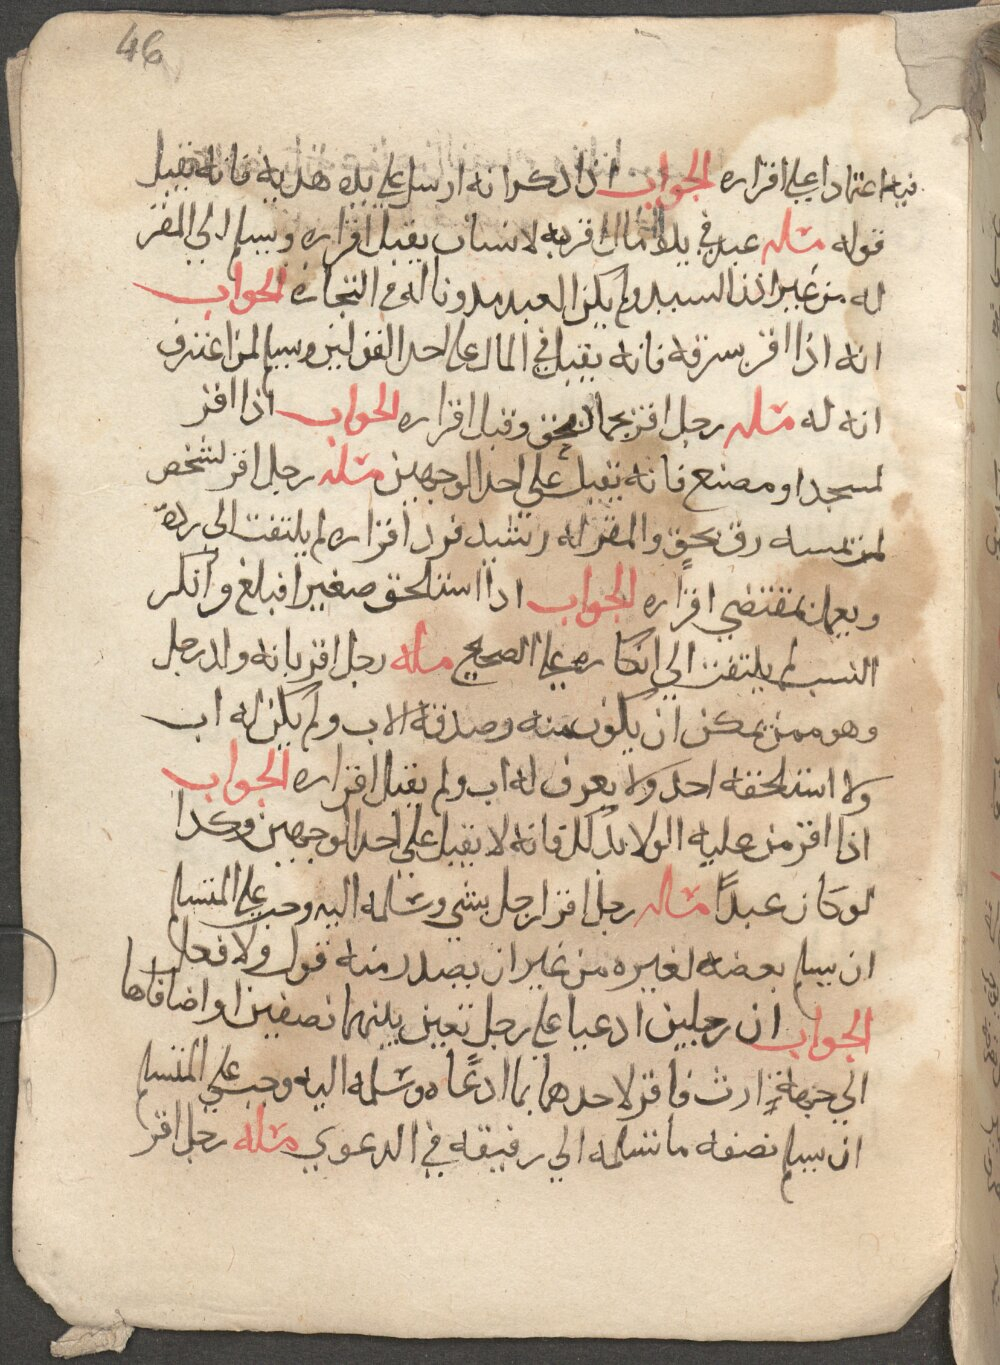 46
فيه اعتمادا على اقراره الجواب اذا ذكر انه ارسل على يده هدية فانه يقبل
قوله مسله عبد في يده مال اقر به لانسان يقبل اقراره ويسلم الى المقر
له من غير اذن السيد ولم يكن العبد مدونا له في التجاره الجواب
انه اذا اقر بسرقه فانه يقبل في المال على احد القولين ويسلم لمن اعترف
انه له مسله رجل اقر بحق وقبل اقراره الجواب اذا اقر
لمسجد او مصنع فانه يقبل على احد الوجهين مسله رجل اقر لشخص
بحق والمقر له رشيد فرد اقراره لم يلتفت الى رده
ويعمل بمقتضى اقراره الجواب اذا استلحق صغيرا فبلغ وانكر
النسب لم يلتفت الى انكاره على الصحيح مسله رجل اقر بانه ولد رجل
وهو ممن يمكن ان يكون منه وصدقه الاب ولم يكن له اب
ولا استلحقه احد ولا يعرف له اب ولم يقبل اقراره الجواب
اذا اقر من عليه الولا بذلك فانه لا يقبل على احد الوجهين وكذا
لو كان عبدا مسله رجل اقر لرجل بشي وسلمه اليه وجب على المتسلم
ان يسلم بعضه لغيره من غير ان يصدر منه قول ولا فعل
الجواب ان رجلين ادعيا على رجل بعين بينهما نصفين واضافاها
الى جهة ارث فاقر لاحدهما بما ادعاه وسلمه اليه وجب على المتسلم
ان يسلم نصفه ما تسلمه الى رفيقه في الدعوي مسله رجل اقر